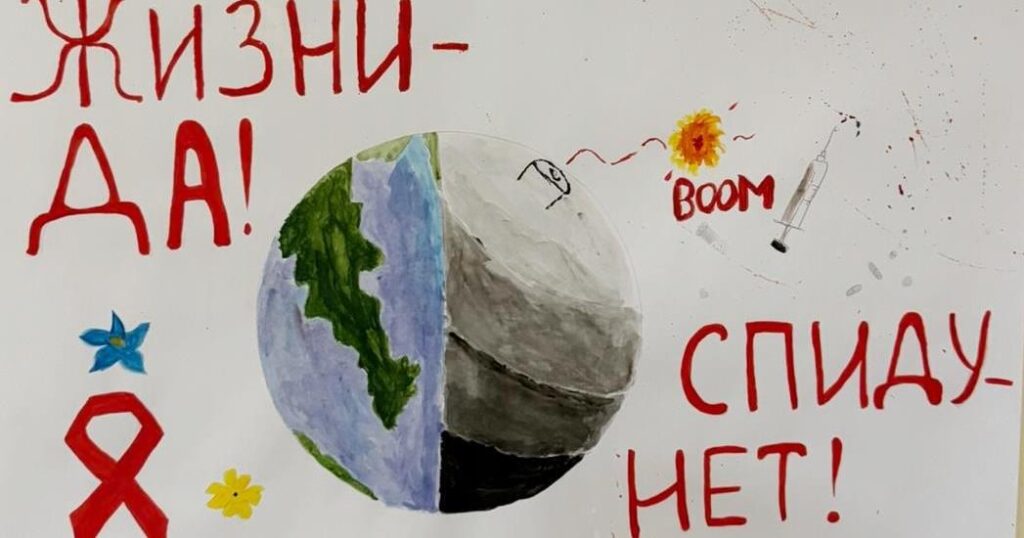 ЖИЗНИ-
ДА!
BOOM
СПИДУ-
НЕТ!